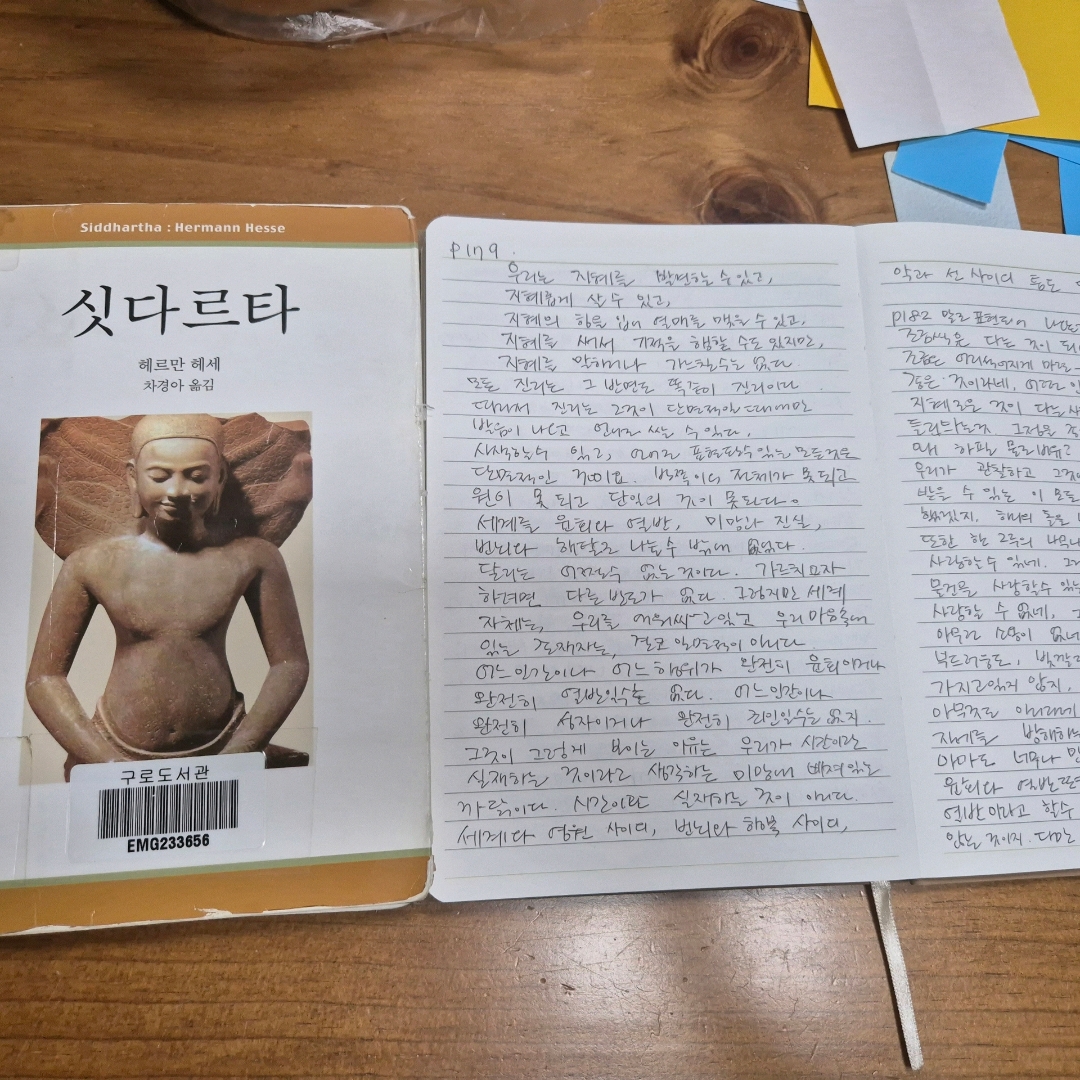 Siddhartha : Hermann Hesse
싯다르타
헤르만 헤세
차경아 옮김
구로도서관
EMG233656
P179.
우리는 지혜를 발견할 수 있고,
지혜롭게 살 수 있고,
지혜의 힘을 입어 열매를 맺을 수 있고,
지혜를 써서 기적을 행할 수도 있지만,
지혜를 말하거나 가르칠 수는 없다.
모든 진리는 그 반면도 똑같이 진리이다.
따라서 진리는 그것이 단면적일 때에만
발음이 나고 언어로 쌀 수 있다,
사색할 수 있고, 언어로 표현할 수 있는 모든 것은
단면적인 것이요. 반쪽이다 전체가 못 되고
원이 못 되고 단일의 것이 못된다.
세계를 윤회와 열반, 미망과 진실,
번뇌와 해탈로 나눌 수 밖에 없었다.
달리는 어쩔 수 없는 것이다. 가르치고자
하려면 다른 방도가 없다. 그렇지만 세계
자체는, 우리를 에워싸고 있고 우리 마음속에
있는 존재자는, 결코 일면적이 아니다.
어느 인간이나 어느 행위가 완전히 윤회이거나
완전히 열반일 수는 없다. 어느 인간이나
완전히 성자이거나 완전히 죄인일 수는 없지.
그것이 그렇게 보이는 이유는 우리가 시간이란
실재하는 것이라고 생각하는 미망에 빠져있는
까닭이다. 시간이란 실재하는 것이 아니다.
세계와 영원 사이, 번뇌와 행복 사이,
악과 선 사이의 틈도
P182 말로 표현되어
조금씩은 다른 것이
조금은 어리석어지게 마련
같은 것이라네,
지혜로운 것이 다른
들린다는
왜 하필 돌로
우리가 관찰하고
받을 수 있는 이 모든
했겠지. 하나의 돌을
또한 한 그루의
사랑할 수 있네.
물건을 사랑할 수 있는
사랑할 수 없네,
아무런 소용이 없네
부드러움도, 빛깔
가지고 있지 않지,
아무것도
자네를 방해하는
아마도 너무나
윤회와 열반
열반이라고 할 수
않는 것이지. 다만